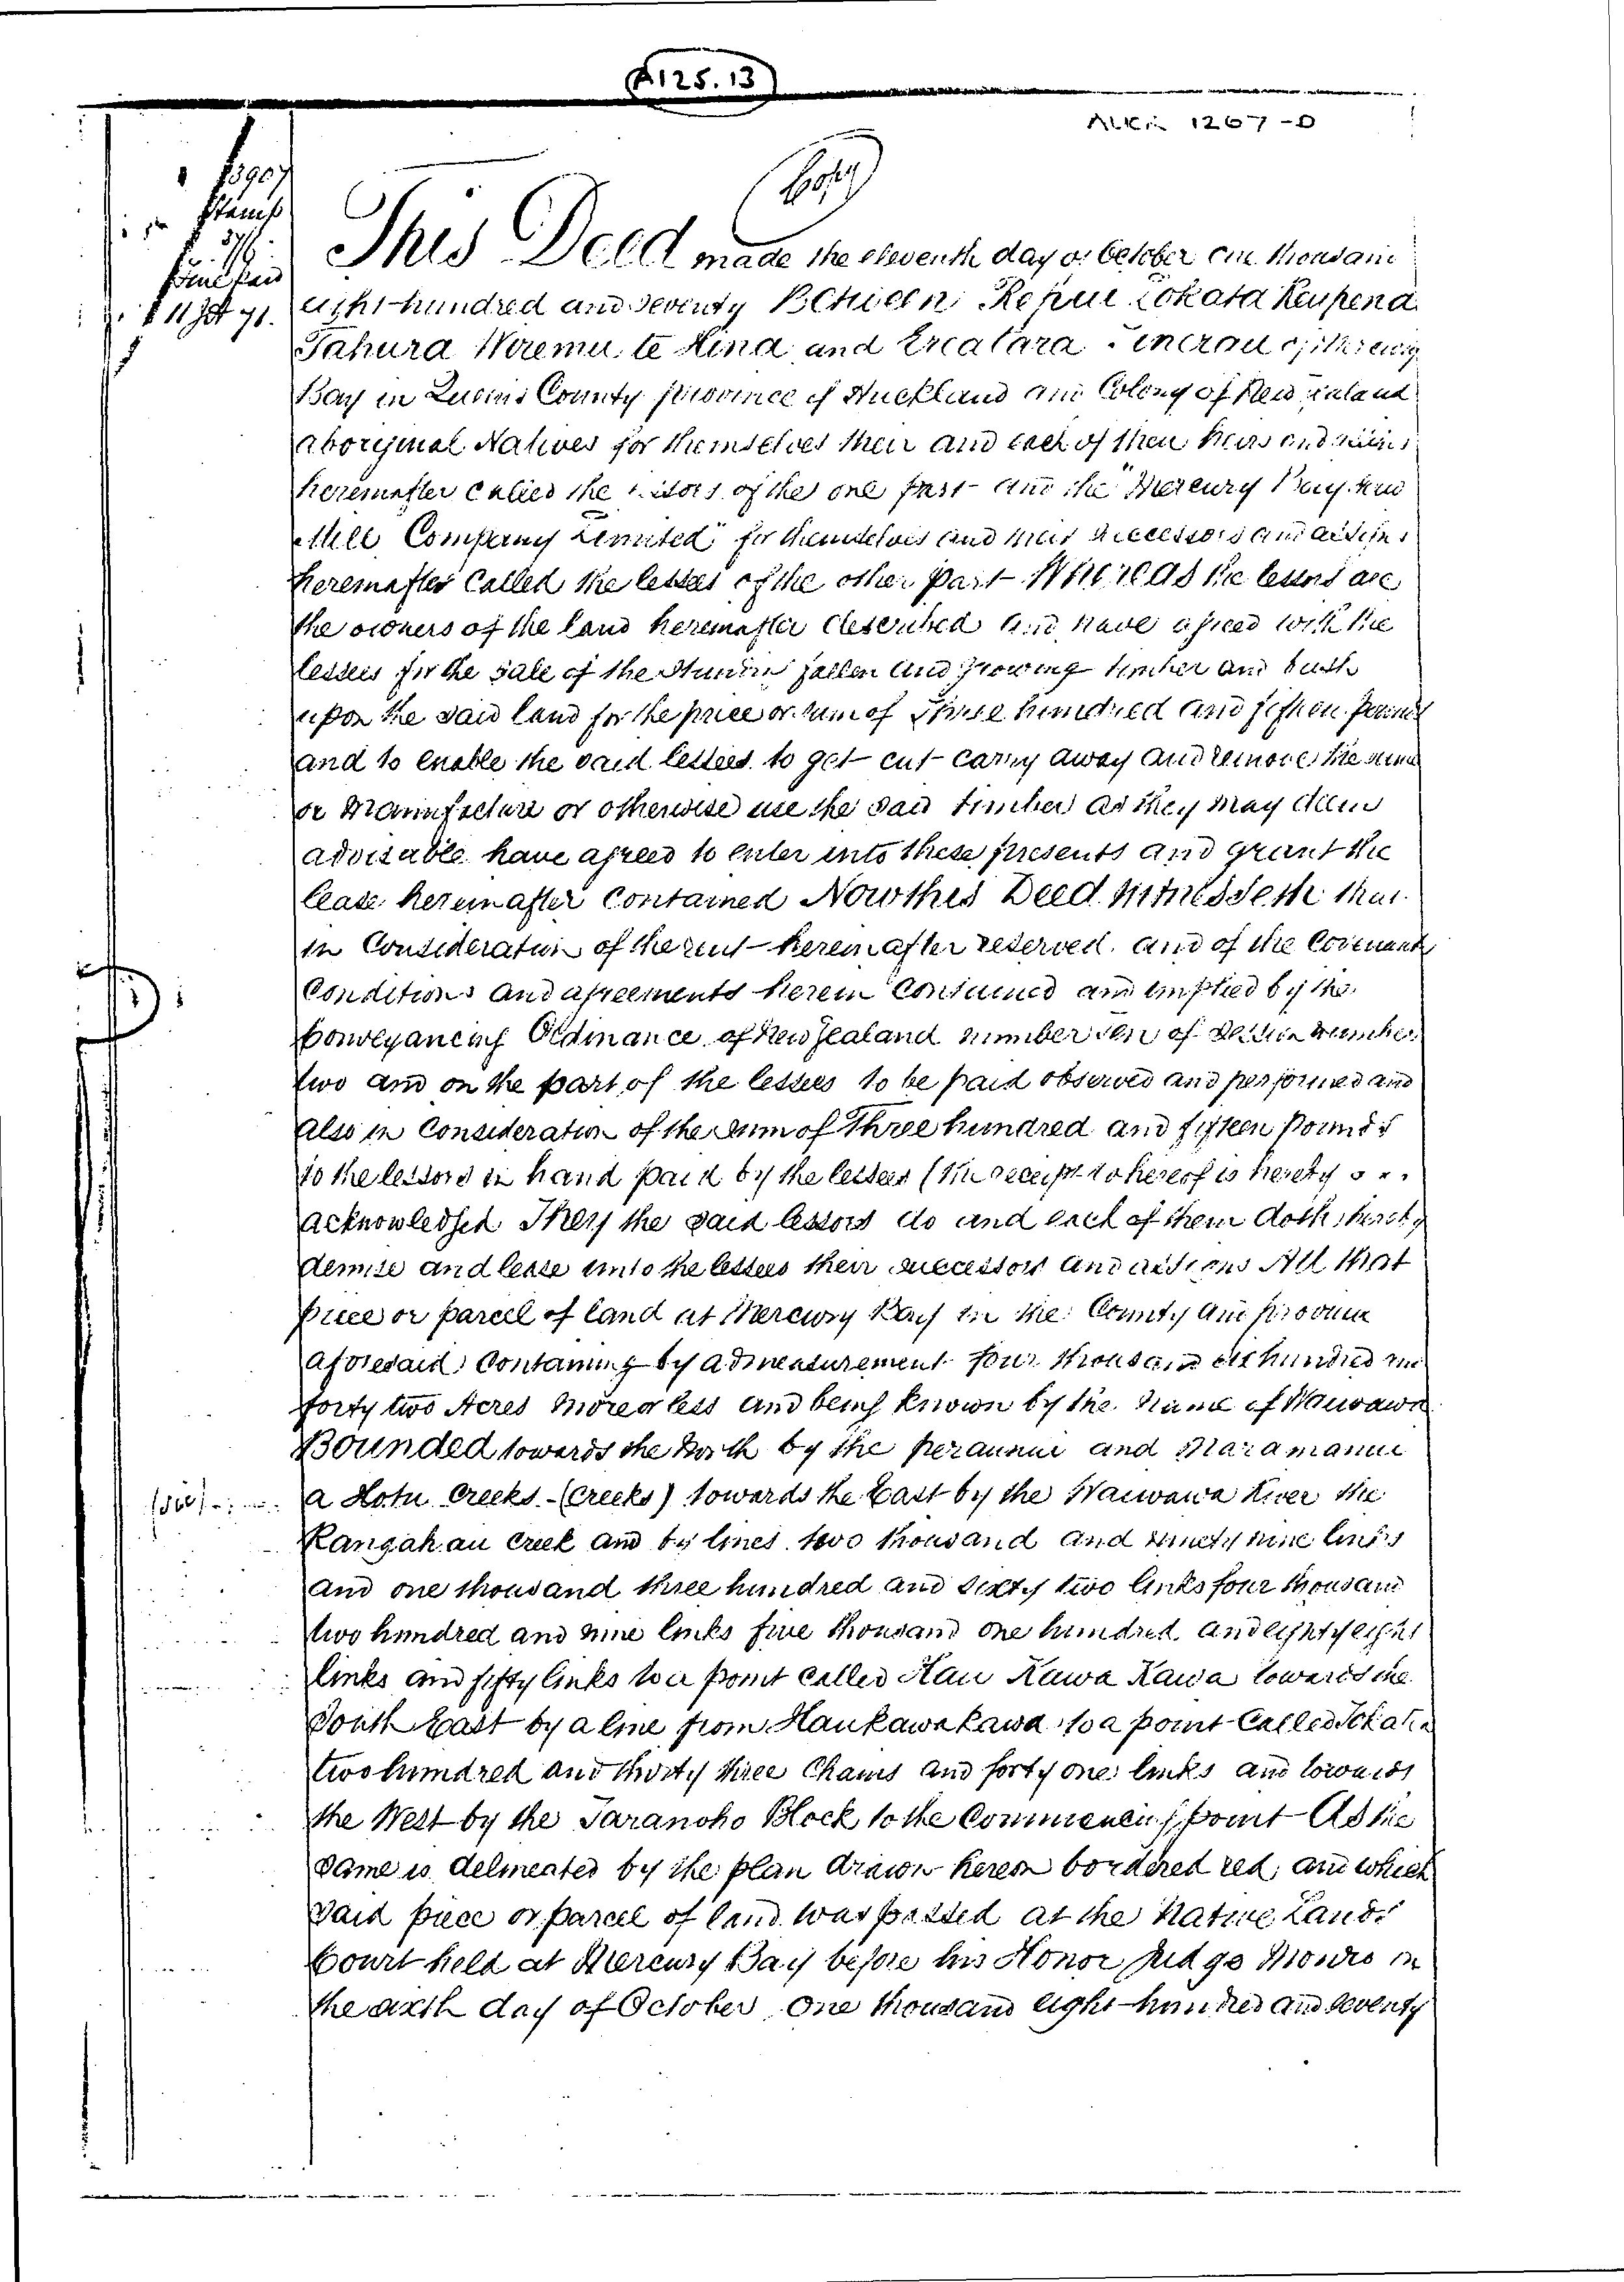 A125.13
1267-D
Copy
This Deed made the eleventh day of October one thousand
eight hundred and seventy Between
Tahura Wiremu te Hina and
Bay in County province of Auckland and Colony of New Zealand
aboriginal Natives for themselves their and each of their heirs and
hereinafter called the lessors of the one part and the "Mercury Bay Saw
Mill Company Limited" for themselves and their successors and assigns
hereinafter called the lessees of the other part Whereas the lessors are
the owners of the land hereinafter described and have agreed with the
lessees for the sale of the standing fallen and growing timber and bush
upon the said land for the price or sum of Three hundred and fifteen pounds
and to enable the said lessees to get cut carry away and remove the same
or manufacture or otherwise use the said timber as they may deem
advisable have agreed to enter into these presents and grant the
lease hereinafter contained Now this Deed Witnesseth that
in Consideration of the rent hereinafter reserved and of the Covenants
Conditions and agreements herein contained and implied by the
Conveyancing Ordinance of New Zealand number ten of Session number
two and on the part of the lessees to be paid observed and performed and
also in Consideration of the sum of Three hundred and fifteen Pounds
to the lessors in hand paid by the lessees (the receipt whereof is hereby
acknowledged They the said lessors do and each of them doth hereby
demise and lease unto the lessees their successors and assigns All that
piece or parcel of land at Mercury Bay in the County and province
aforesaid Containing by admeasurement four thousand hundred and
forty two Acres more or less and being known by the name of
Bounded towards the North by the and
a Hotu Creeks (Creeks) towards the East by the Waiwawa River the
Rangahau Creek and by lines two thousand and ninety nine links
and one thousand three hundred and sixty two links four thousand
two hundred and nine links five thousand one hundred and eighty eight
links and fifty links to a point called Hau Kawa Kawa towards the
South East by a line from Haukawakawa to a point Called
two hundred and thirty three Chains and forty one links and towards
the West by the Taranoho Block to the Commencing point As the
same is delineated by the plan drawn hereon bordered red and which
said piece or parcel of land was passed at the Native Lands
Court held at Mercury Bay before his Honor Judge Monro on
the sixth day of October One thousand eight hundred and seventy